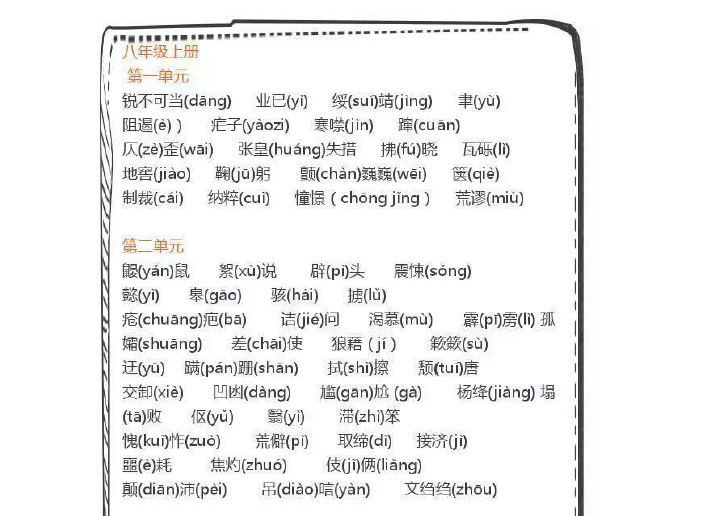 八年级上册
第一单元
锐不可当(dāng) 业已(yǐ) 绥(suí)靖(jìng) 聿(yù)
阻遏(è)） 疟子(yàozi) 寒噤(jìn) 蹿(cuān)
仄(zè)歪(wāi) 张皇(huáng)失措 拂(fú)晓 瓦砾(lì)
地窖(jiào) 鞠(jū)躬 颤(chàn)巍巍(wēi) 箧(qiè)
制裁(cái) 纳粹(cuì) 憧憬（chōng jǐng） 荒谬(miù)
第二单元
鼹(yǎn)鼠 絮(xù)说 辟(pì)头 震悚(sǒng)
懿(yì) 皋(gāo) 骇(hài) 掳(lǔ)
疮(chuāng)疤(bā) 诘(jié)问 渴慕(mù) 霹(pī)雳(lì) 孤
孀(shuāng) 差(chāi)使 狼藉（jí） 簌簌(sù)
迂(yū) 蹒(pán)跚(shān) 拭(shì)擦 颓(tuí)唐
交卸(xiè) 凹凼(dàng) 尴(gān)尬 (gà) 杨绛(jiàng) 塌
(tā)败 伛(yǔ) 翳(yì) 滞(zhì)笨
愧(kuì)怍(zuò) 荒僻(pì) 取缔(dì) 接济(jì)
噩(è)耗 焦灼(zhuó) 伎(jì)俩(liǎng)
颠(diān)沛(pèi) 吊(diào)唁(yàn) 文绉绉(zhōu)